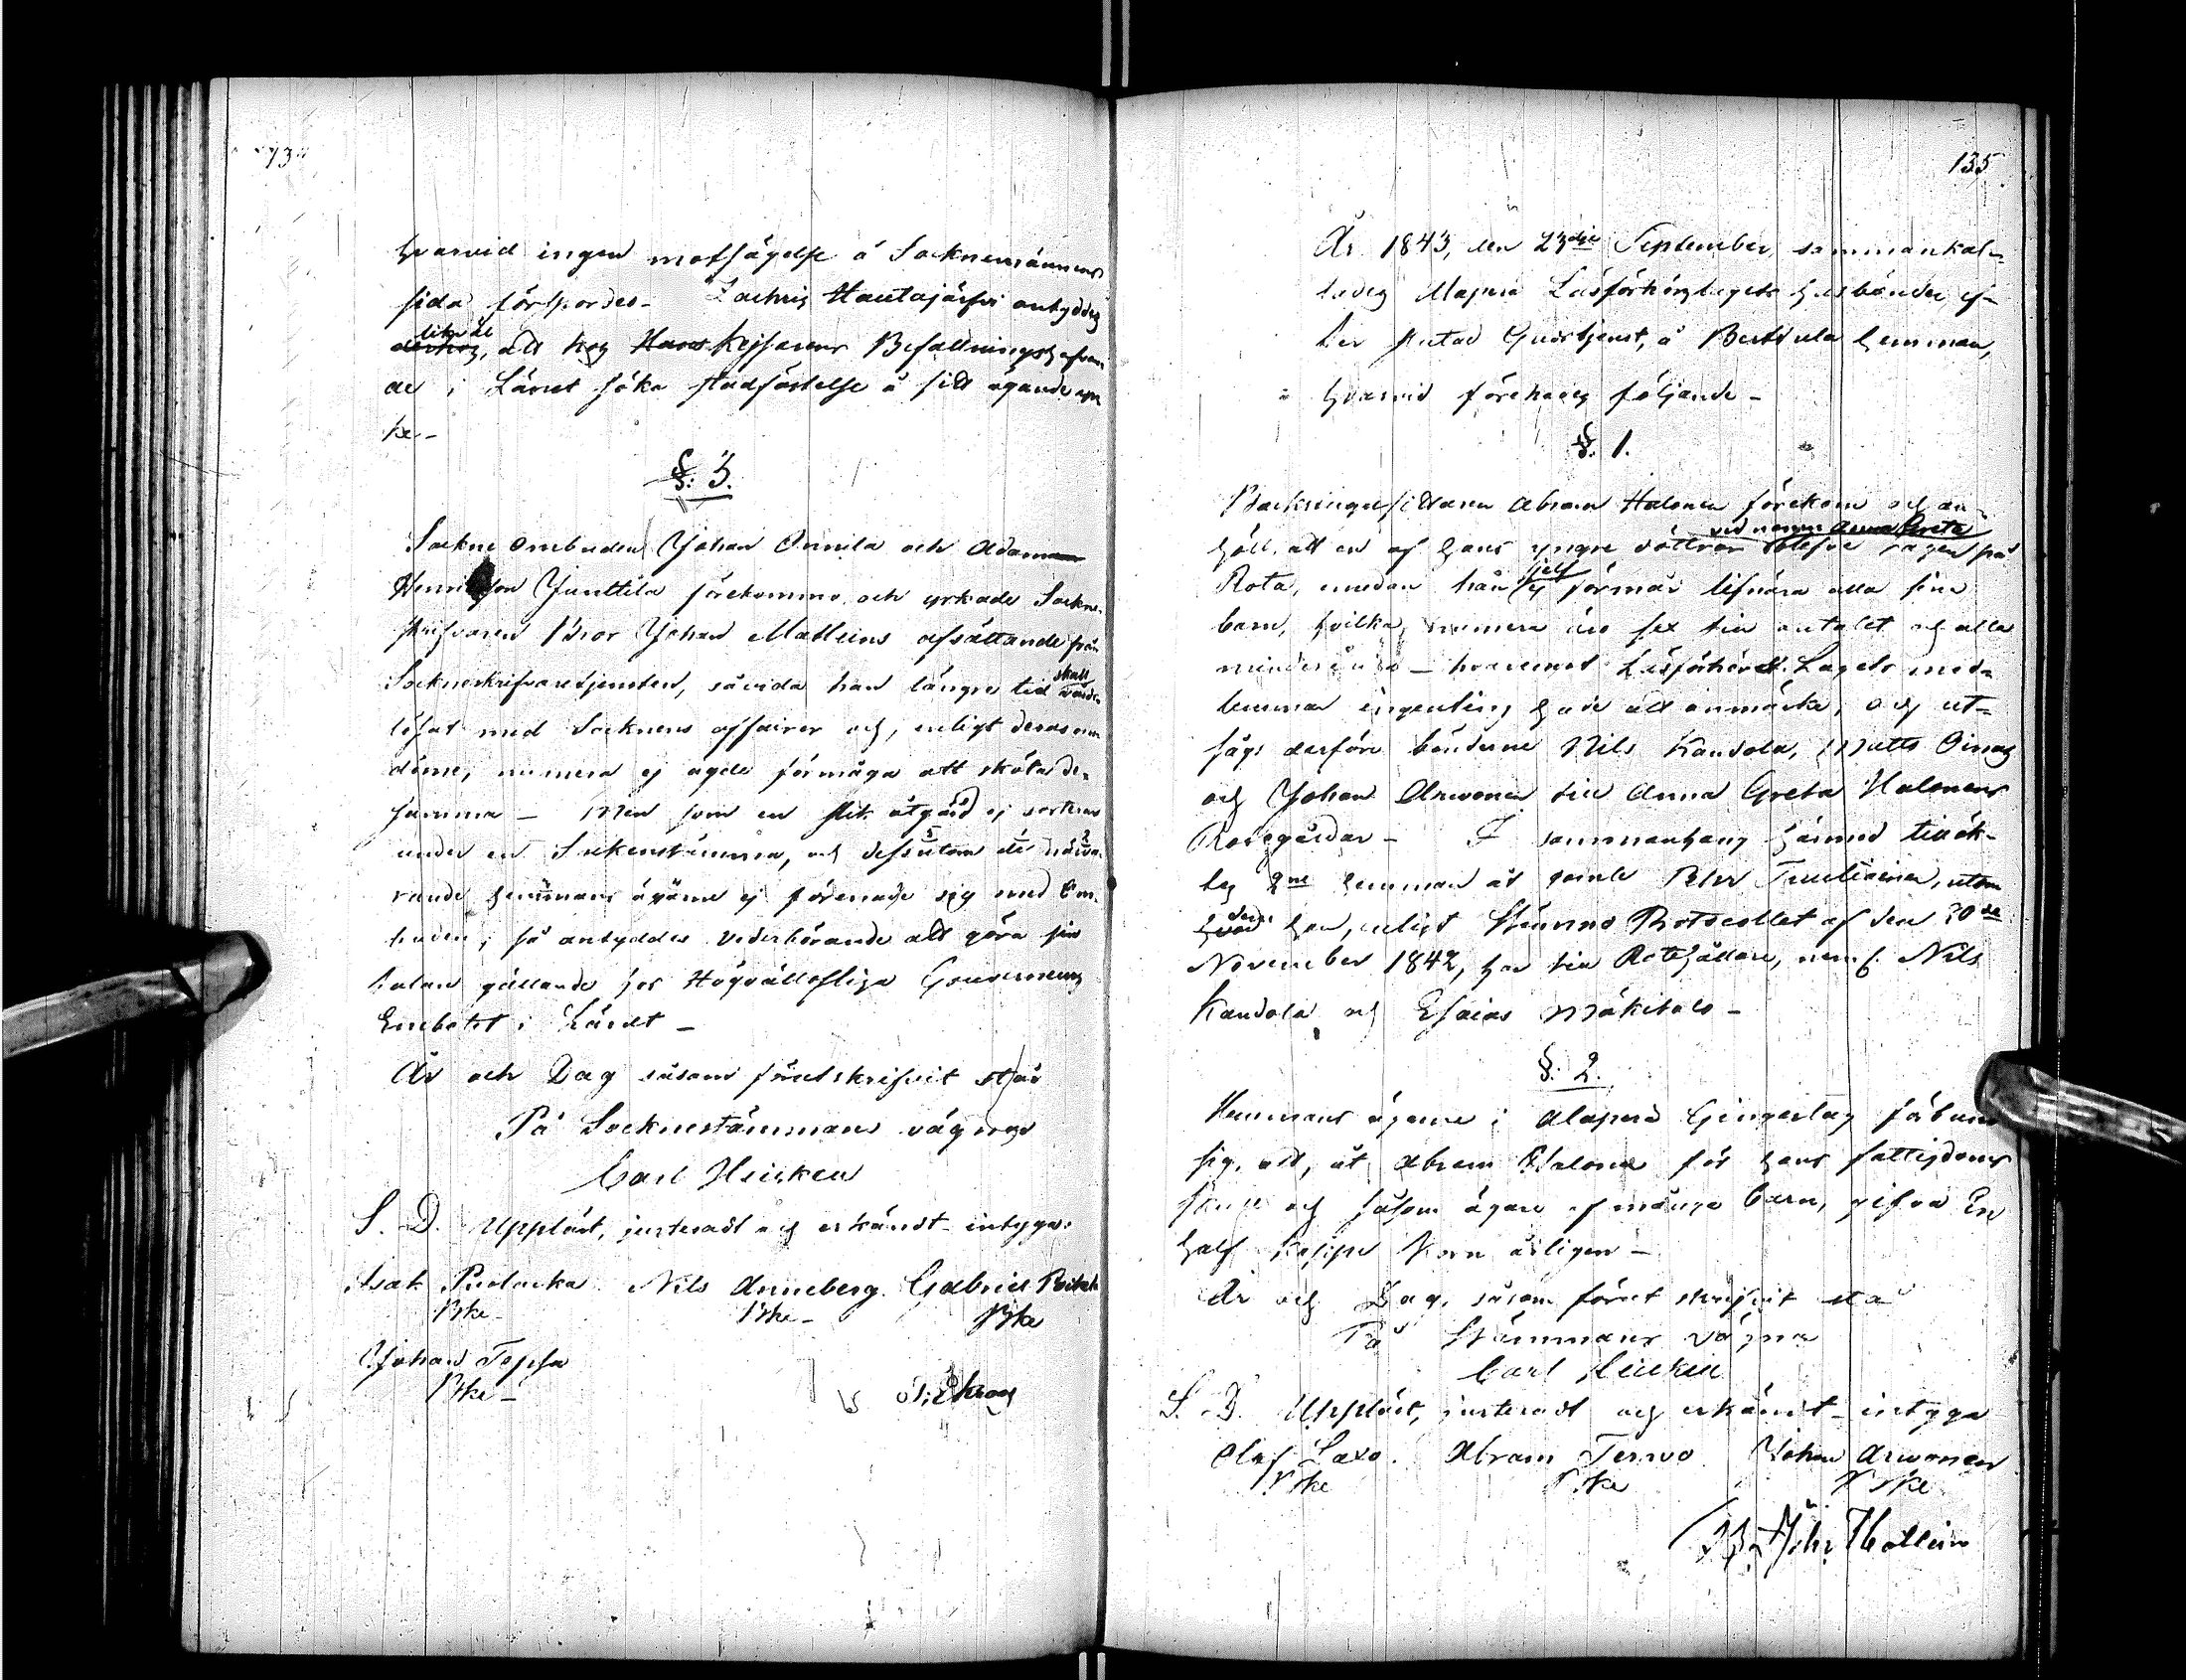 hvarvid ingen motsägelse å Socknemännens
sida förspordes - Zachris Hautajärfvi antyddes
likväl
att hos Kejsarens Befallningshafvan
de i Länet söka stadfästelse å sitt ägande
§: 3.
Sockne Ombuden Johan Onnila och Adam
Henriksson Junttila förekommo och yrkade Sockne
skrifvaren Bror Johan Matleins afsättande från
skall
Socknskrifvaretjensten, såvida han längre tid
löst med Socknens affairer och, enligt deras om
döme, numera ej ägde förmåga att sköta de-
samma - Men som en slik åtgärd ej
under en Sockenstämma, och dessutom de närva
rande hemmans ägarne ej förenade sig med Om-
buden, så antyddes vederbörande att göra sin
talan gällande hos Högvällofliga Gouvernements
Embetet i Länet -
År och Dag såsom förut skrifvit står
På Socknestämmans vägnar
Carl Heickell
S. D. Uppläst, justeradt och erkändt intyga:
Isak Nils Anneberg. Gabriel
Johan Topsa
135
År 1843, den 23dje September, sammankal-
lades Alaperä Läsförhörslagets husbönder, ef-
ter slutad Gudstjenst, å Perttula hemman,
hvarvid förehades följande -
§. 1.
Backstugusittaren Abram Halonen förekom och an-
vid namn Anna Greta
höll, att en af hans yngre döttrar blefve tagen på
sjelf
Rota, emedan han ej förmår lifnära alla sina
barn, hvilka numera äro sex till antalet och alla
minderåriga - hvaremot Läsförhörs Lagets med-
lemmar ingenting hade att anmärka, och ut-
sågs derföre bönderne Nils Kandola, Matts Oinas
och Johan Arwonen till Anna Greta Halonens
Rotegårdar - I sammanhang härmed tillök-
tes 2ne hemman åt gamle Petter utom
dem
han, enligt Stämmo Protocollet af den 20de
November 1842, har till Rotehållare, neml. Nils
Kandola och Esaias Mäkitalo -
§. 2.
Hemmans ägarne i Alaperä Gingerlag förbundo
sig, att, åt Abram Halonen för hans fattigdoms
skull och såsom ägare af många barn, gifva En
half kappe Korn årligen -
År och Dag, såsom förut skrifvit står
På Stämmans vägnar
Carl Heickell
S. D. Uppläst, justeradt och erkändt intyga
Olof Saxo. Abram Tervo Johan Arwonen
Joh: Matlein